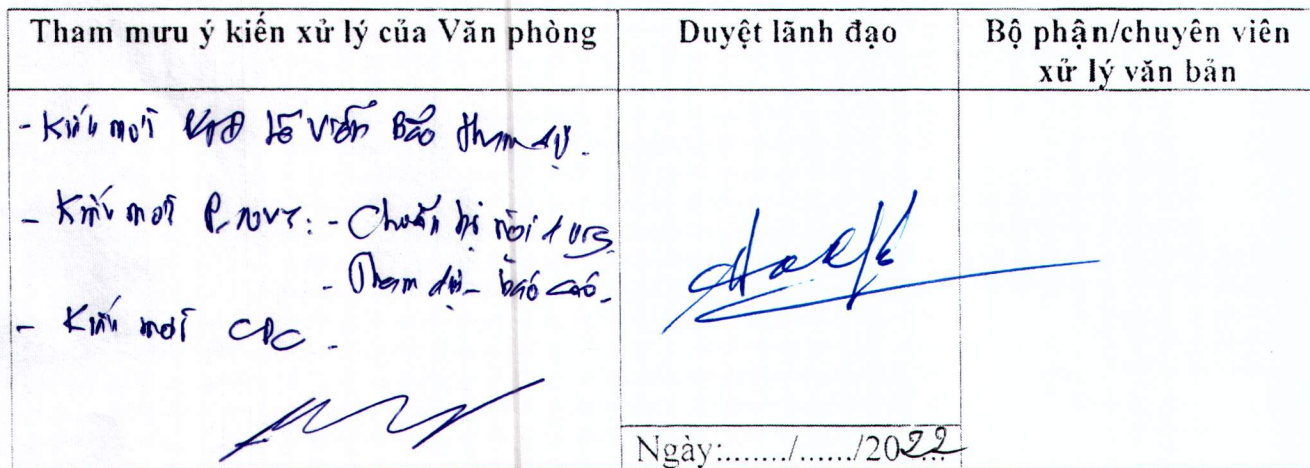 Tham mưu ý kiến xử lý của Văn phòng
Duyệt lãnh đạo
Bộ phận/chuyên viên
xử lý văn bản
- Kính mời Lê Viễn Bảo tham dự.
- Kính mời P. : - Chuẩn bị nội dung
- Tham dự - báo cáo.
- Kính mời
Ngày:......./....../2022